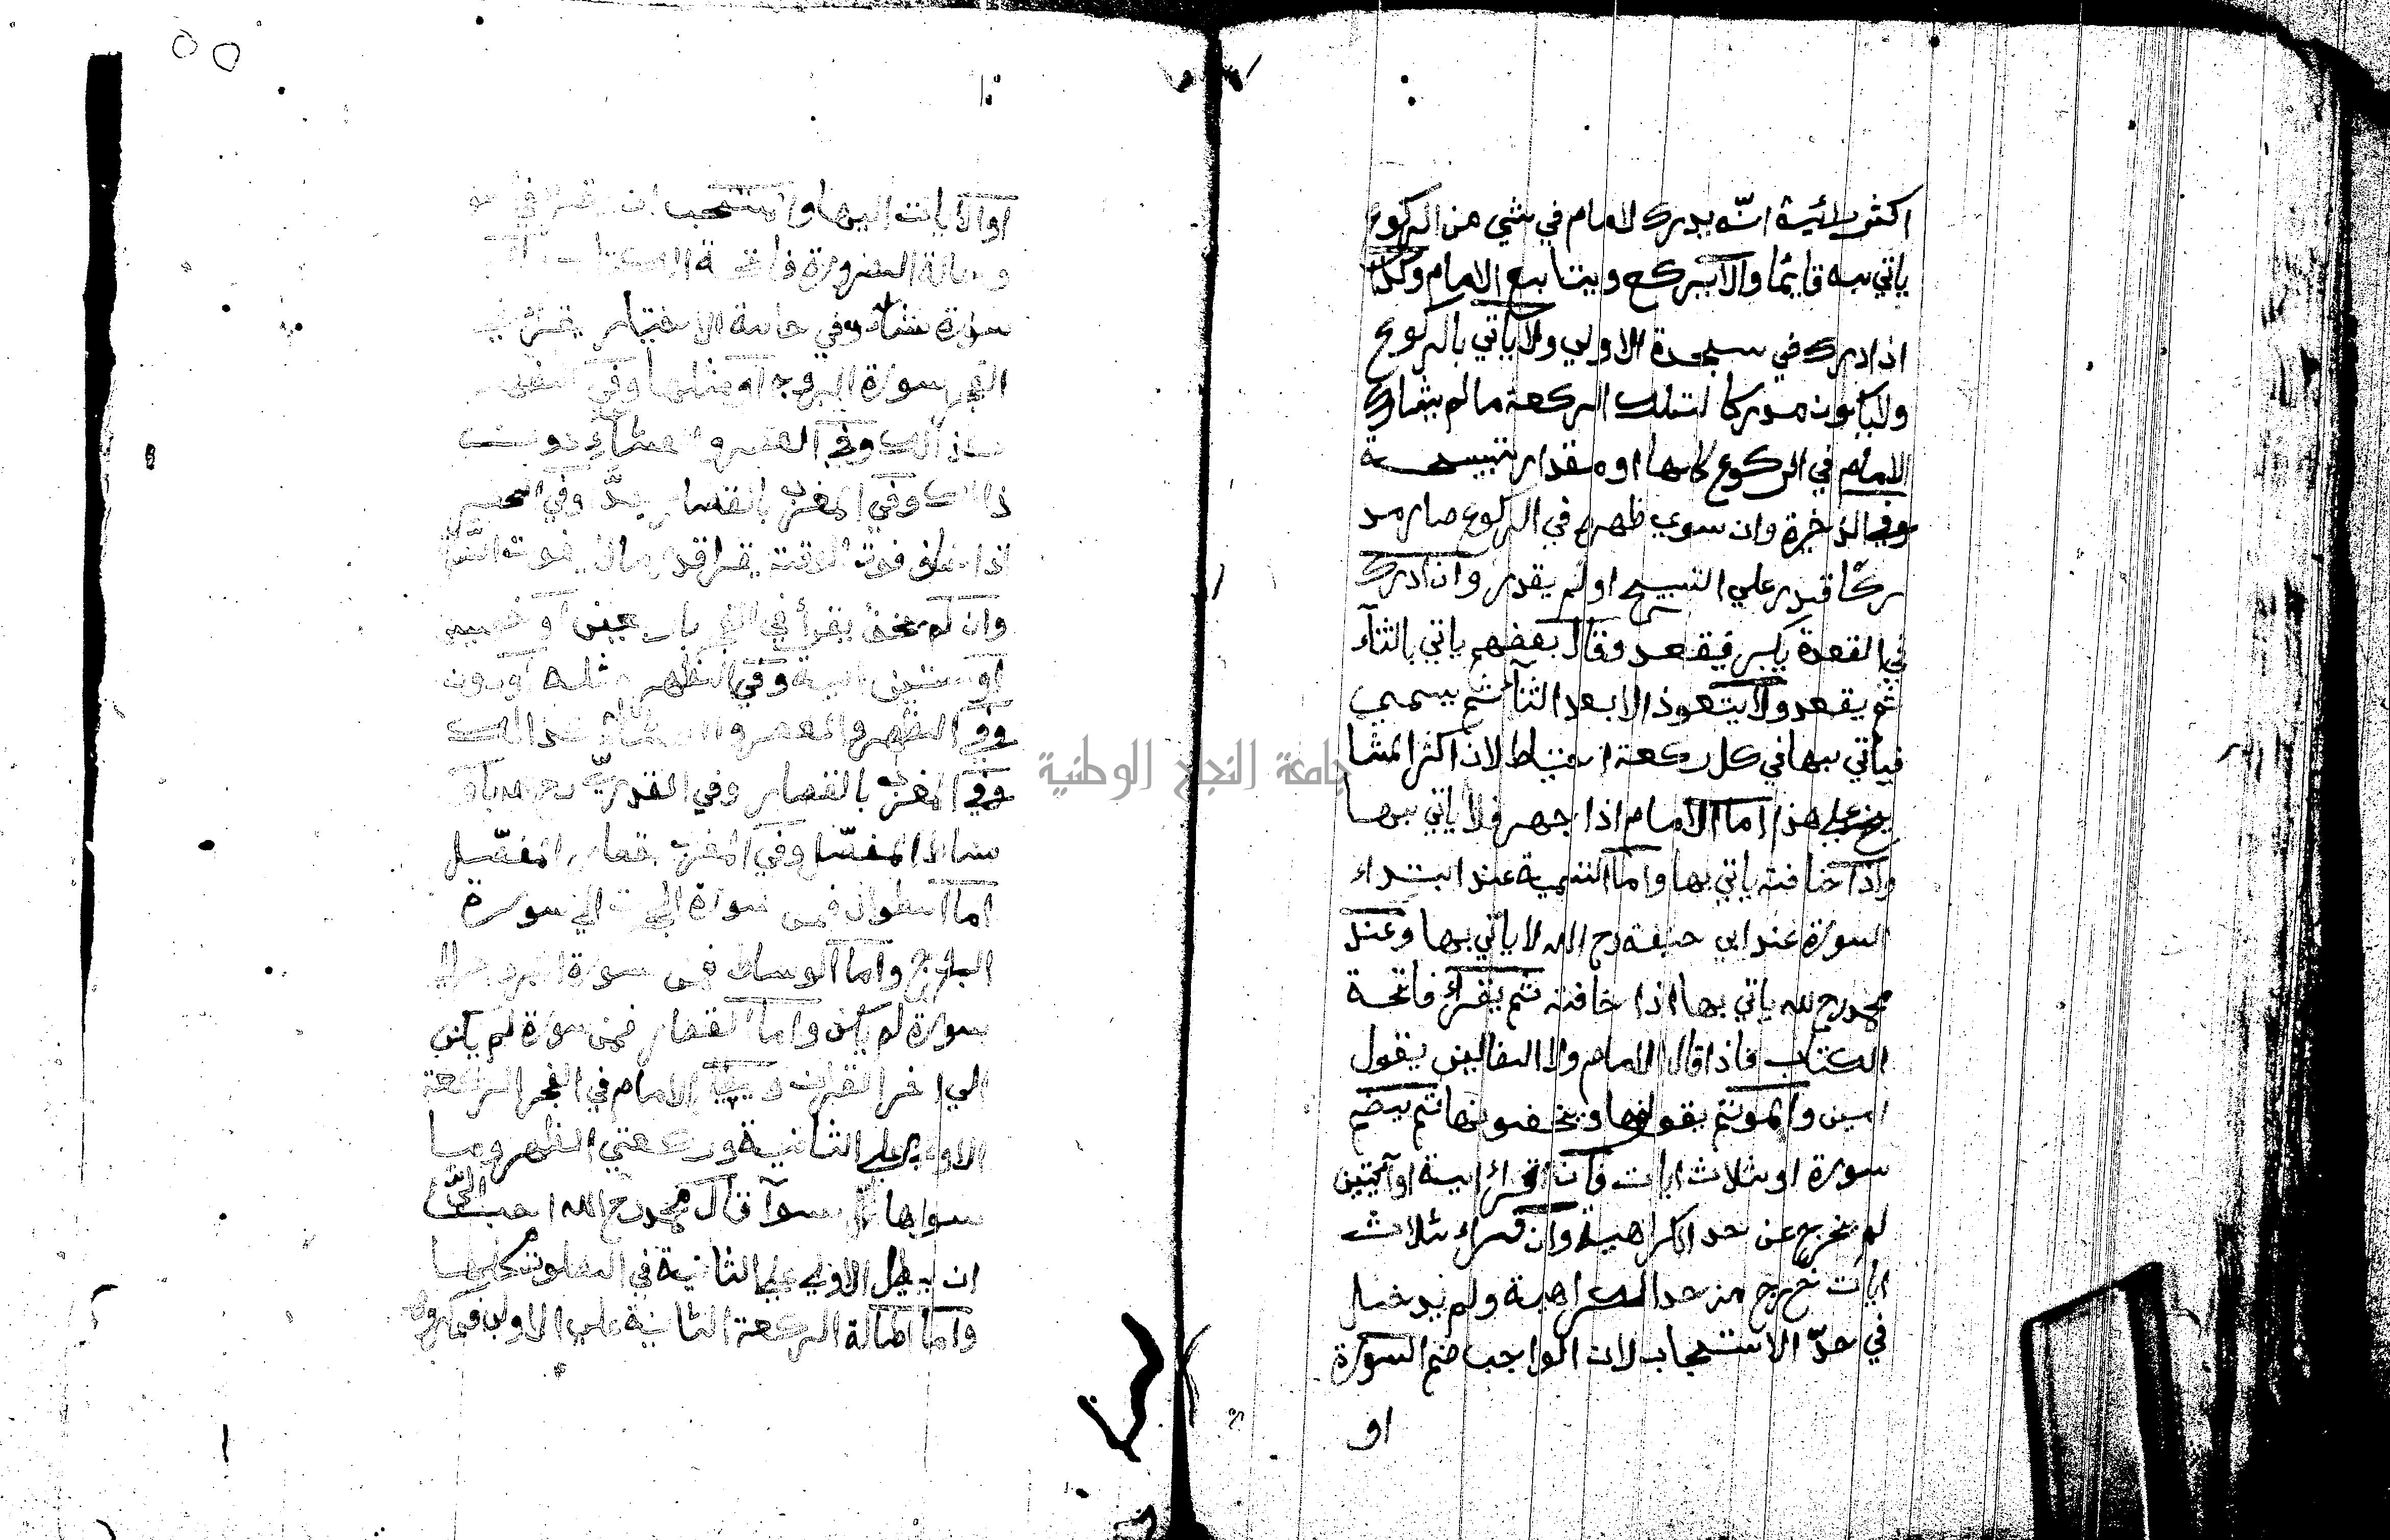 اكثر رائيه انّه يدرك الامام في شي من الركوع
ياتي به قايما والا يركع ويتابع الامام وكذا
اذا ادرك في سجدة الاولي ولا ياتي بالركوع
ولا يكون مدركا لتلك الركعة ما لم يشارك
الامام في الركوع كلها او مقدار تسبيحة
وفي الذخيرة وان سوي ظهره في الركوع صار مد
ركا قدر علي التسبيح او لم يقدر وان ادرك
في القعدة يكبر فيقعد وقال بعضهم ياتي بالثنآء
ثم يقعد ولا يتعوذ الا بعد الثنآ ثم يسمي
فياتي بها في كل ركعة احتياط لان اكثر المشا
يخ علي هذا اما الامام اذا جهر فلا ياتي بها
واذا خافت ياتي بها واما التسمية عند ابتداء
السورة عند ابي حنيفة رح الله لا ياتي بها وعند
محمد رح لله ياتي بها اذا خافت ثم يقرأ فاتحة
الكتاب فاذا قال الامام ولا الضالين يقول
امين والمؤتم يقولها ويخفونها ثم يضم
سورة او ثلاث ايات فان قرا اية او آيتين
لم يخرج عن حد الكراهية وان قراء ثلاث
ايات خرج من حد الكراهية ولم يدخل
في حدّ الاستحباب لان الواجب ضم السورة
او
او الايات اليها والمستحب ان يقرا في
حالة الضرورة فاتحة الكتاب
سورة شاء وفي حالة الاختيار يقرأ في
الفجر سورة البروج او مثلها وفي الظهر
ذالك وفي العصر والعشآء دون
ذالك وفي المغرب بالقصار جدّا وفي
اذا خاف فوت الوقت يقرا قدر مالا يفوت
وان لم يخف يقرأ في الفجر باربعين او خمسين
او ستين اية وفي الظهر مثله او دون
وفي الظهر والعصر والعشآء كذالك
وفي المغرب بالقصار وفي القدوريّ
المفصّل وفي المغرب بقصار المفصّل
اما الطوال فمن سورة الحجرات الي سورة
البروج واما الوساط فمن سورة البروج الي
سورة لم يكن واما القصار فمن سورة لم يكن
الي اخر القران ويطيل الامام في الفجر الركعة
الاولي علي الثانية وركعتي الظهر وما
سواها سوآ قال محمد رح الله احب اليّ
ان يطيل الاولي علي الثانية في الصلوت كلها
واما اطالة الركعة الثانية علي الاولي فمكروه
جامعة النجاح الوطنية